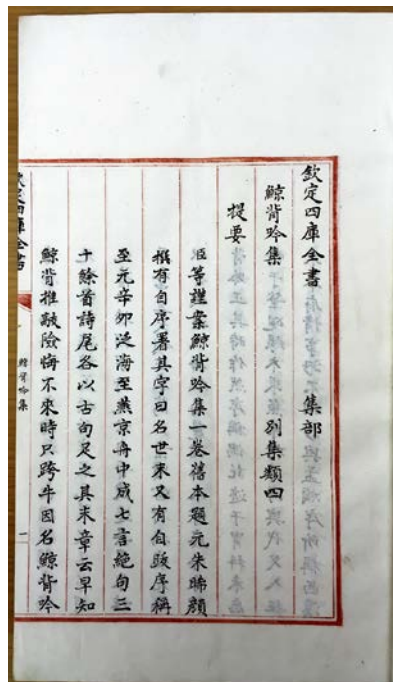 欽定四庫全書 集部
鯨背吟集 別集類四
提要
臣等謹案鯨背吟集一卷舊本題元朱晞顔
撰有自序署其字曰名世末又有自跋序稱
至元辛卯泛海至燕京舟中成七言絶句三
十餘首詩尾各以古句足之其末章云早知
鯨背推敲險悔不來時只跨牛因名鯨背吟
欽定四庫全書
鯨背吟集
一